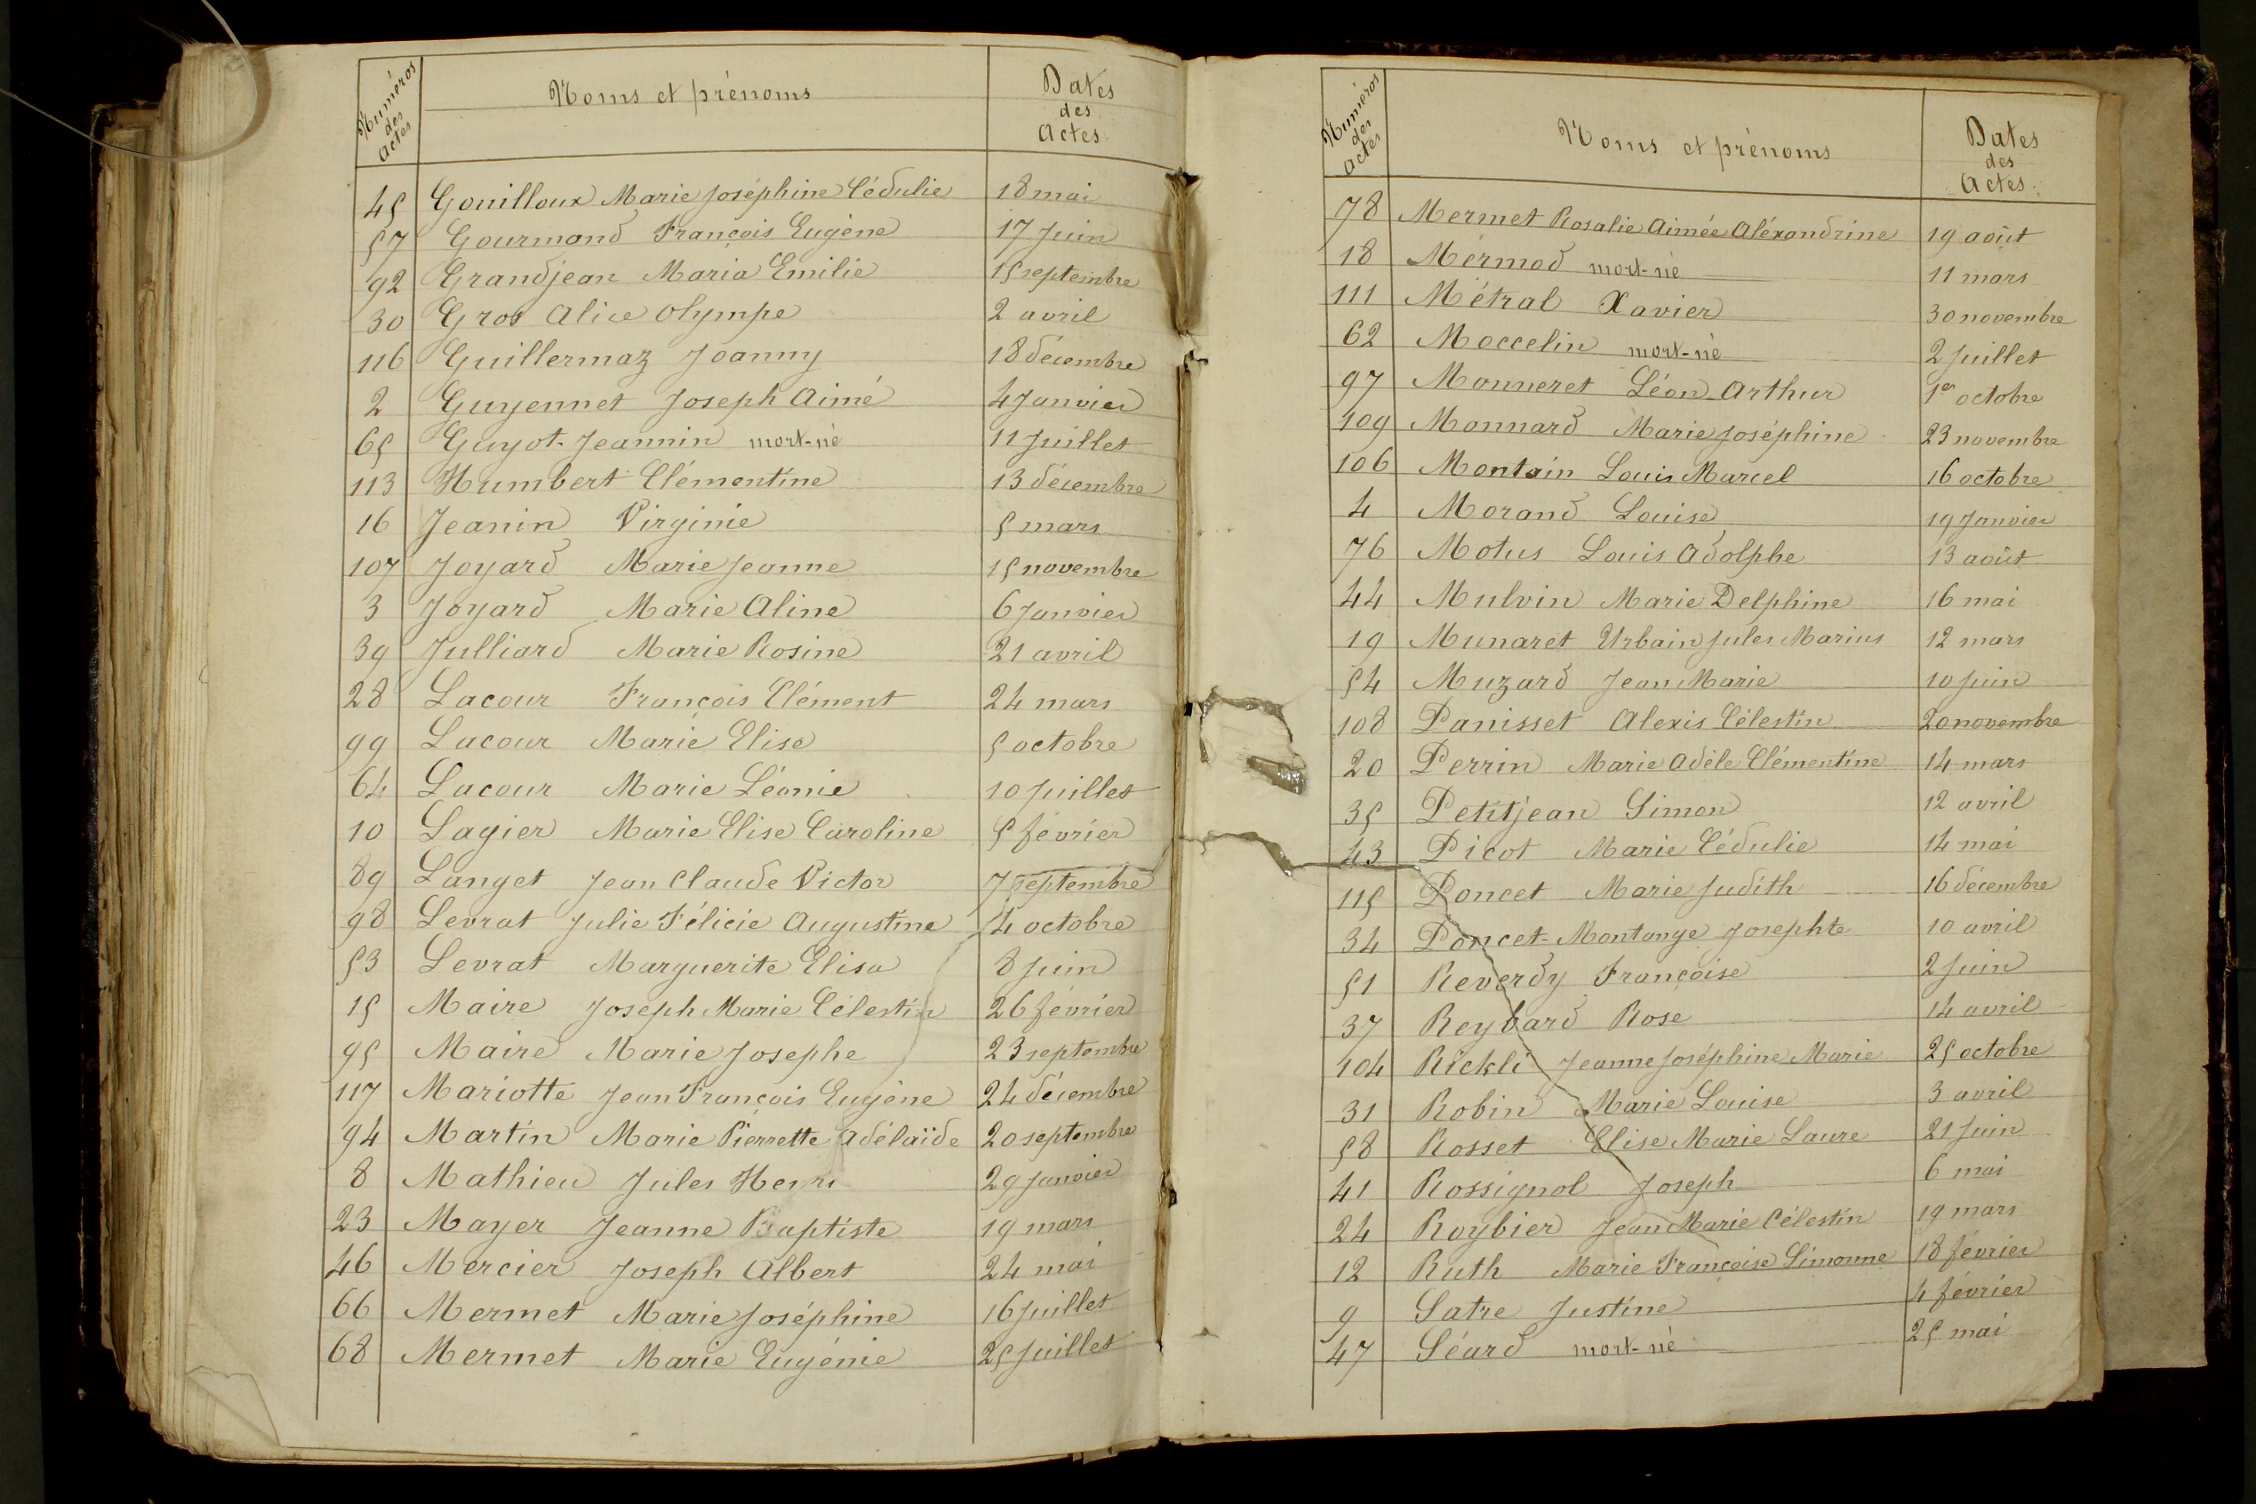 Numéros des Actes Noms et prénoms Dates des Actes
45 Gouilloux Marie Joséphine Cédulie 18 mai
57 Gourmand François Eugène 17 Juin
92 Grandjean Maria Emilie 15 septembre
30 Gros Alice Olympe 2 avril
116 Guillermaz Joanny 18 décembre
2 Guyennet Joseph Aimé 4 Janvier
65 Guyot-Jeannin mort-né 11 Juillet
113 Humbert Clémentine 13 décembre
16 Jeanin Virginie 5 mars
107 Joyard Marie Jeanne 15 novembre
3 Joyard Marie Aline 6 Janvier
39 Julliard Marie Rosine 21 avril
28 Lacour François Clément 24 mars
99 Lacour Marie Elise 5 octobre
64 Lacour Marie Léonie 10 Juillet
10 Lagier Marie Elise Caroline 5 février
89 Langet Jean Claude Victor 7 septembre
98 Levrat Julie Félicie Augustine 4 octobre
53 Levrat Marguerite Elisa 8 Juin
15 Maire Joseph Marie Célestin 26 février
95 Maire Marie Josephe 23 septembre
117 Mariotte Jean François Eugène 24 décembre
94 Martin Marie Pierrette Adélaïde 20 septembre
8 Mathieu Jules Henri 29 Janvier
23 Mayer Jeanne Baptiste 19 mars
46 Mercier Joseph Albert 24 mai
66 Mermet Marie Joséphine 16 Juillet
68 Mermet Marie Eugénie 25 Juillet
Numéros des Actes Noms et prénoms Dates des Actes
78 Mermet Rosalie Aimée Aléxandrine 19 août
18 Mermod mort-né 11 mars
111 Métral Xavier 30 novembre
62 Moccelin mort-né 2 Juillet
97 Monneret Léon Arthur 1er octobre
109 Monnard Marie Joséphine 23 novembre
106 Montain Louis Marcel 16 octobre
4 Morand Louise 19 Janvier
76 Motus Louis Adolphe 13 août
44 Mulvin Marie Delphine 16 mai
19 Munaret Urbain Jules Marius 12 mars
54 Muzard Jean Marie 10 Juin
108 Panisset Alexis Célestin 20 novembre
20 Perrin Marie Adèle Clémentine 14 mars
35 Petitjean Simon 12 avril
43 Picot Marie Cédulie 14 mai
115 Poncet Marie Judith 16 décembre
34 Poncet-Montange Josephte 10 avril
51 Reverdy Françoise 2 Juin
37 Reybard Rose 14 avril
104 Rickli Jeanne Joséphine Marie 25 octobre
31 Robin Marie Louise 3 avril
58 Rosset Elise Marie Laure 21 Juin
41 Rossignol Joseph 6 mai
24 Roybier Jean Marie Célestin 19 mars
12 Ruth Marie Françoise Simonne 18 février
9 Satre Justine 4 février
47 Séard mort-né 25 mai